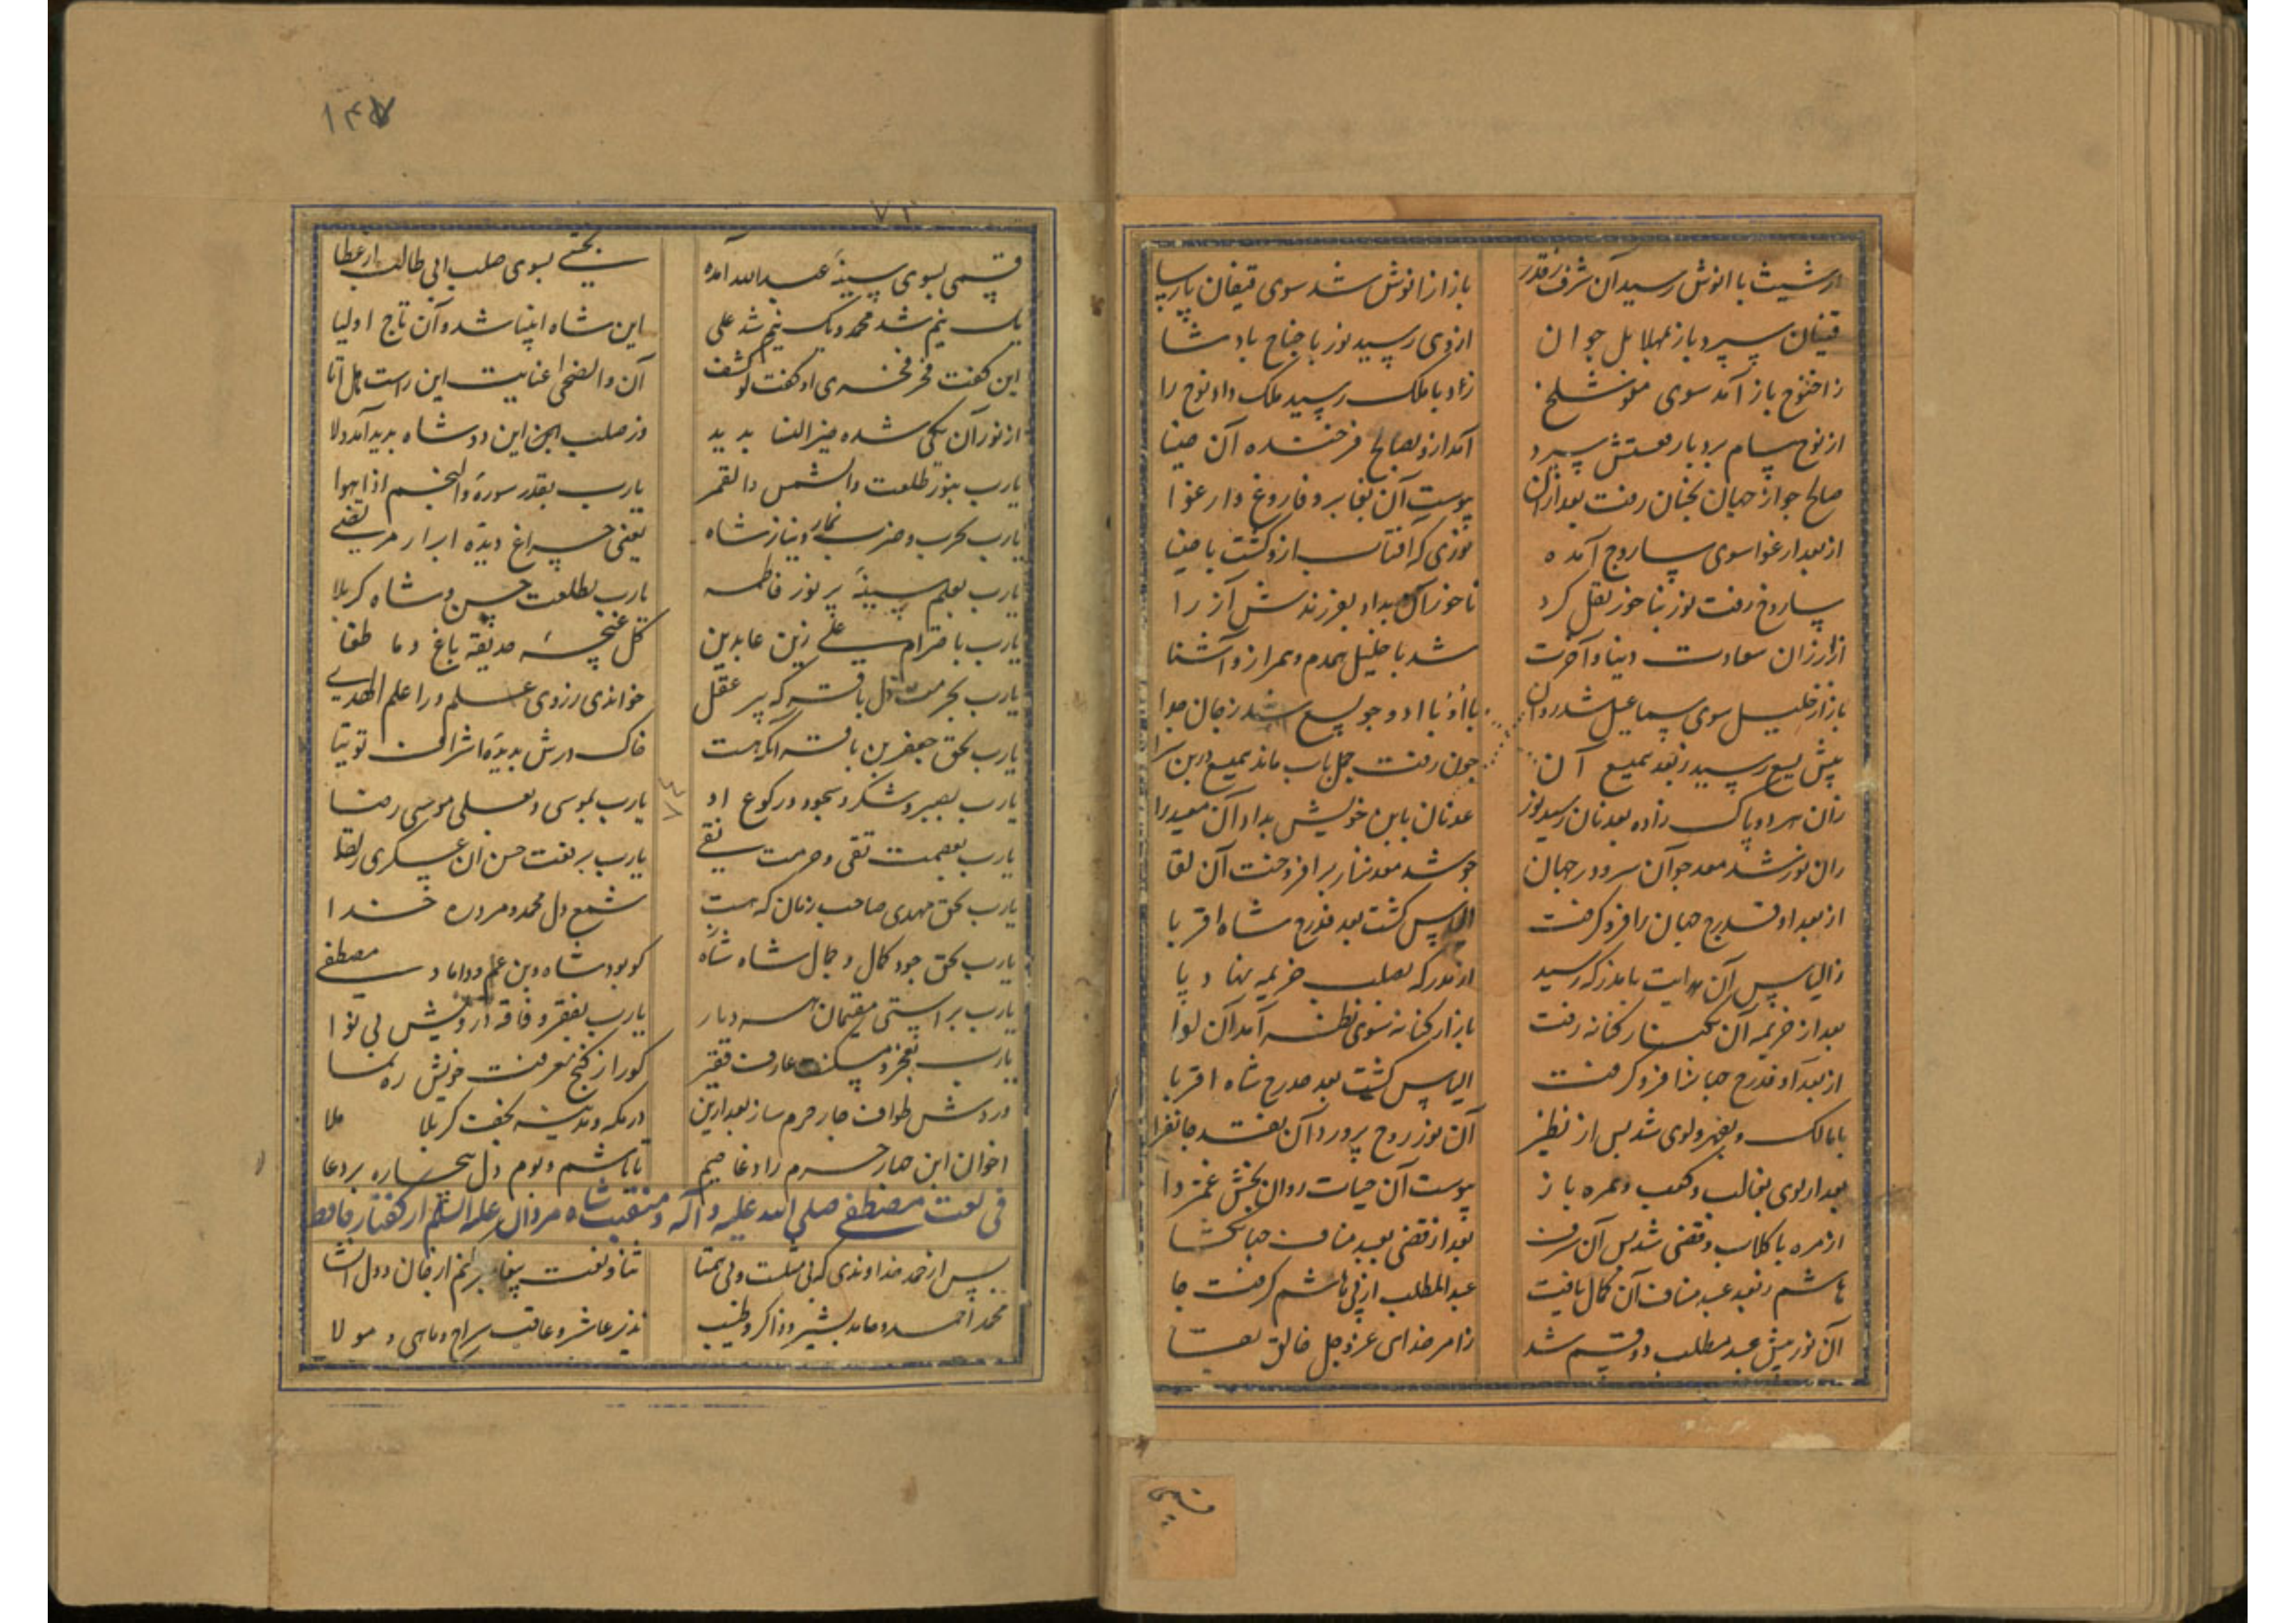 از شیث با انوش رسید آن شرف ز قدر باز از انوش شد سوی قینان پارسا
قینان سپرد باز بمهلایل جوان از وی رسید نور با جناح بادشا
ز اخنوخ باز آمد سوی متوشلخ زاد با ملک رسید ملک داد نوح را
از نوح سام برد بار فعتش سپرد آمد ازو بصالح فرخنده آن ضیا
صالح جو از جهان بجنان رفت بعد از آن پیوست آن بغابر و فاروغ و ارغوا
از بعد ارغوا سوی ساروح آمده نوری که افتاب ازو گشت با ضیا
ساروغ رفت نور بناخور نقل کرد ناخور آن بداد بفرزندش آزر را
از آزر آن سعادت دنیا و آخرت شد با خلیل همدم و همراز و آشنا
باز از خلیل سوی سماعیل شد روان با او با ادد جو یسع شد ز جان جوا
پیش یسع رسید ز بعد همیع آن چون رفت جمل باب ماند همیع درین سرا
زان سرو پاک زاده بعدنان رسید نور عدنان بابن خویش بداد آن معید را
زان نور شد معد جو آن سرو در جهان جو شد معد نزار برافروخت آن لقا
از بعد او مدرج جهان را فرو گرفت الیاس گشت بعد مدرج شاه اقربا
ز الیاس آن هدایت با مدرکه رسید از مدرکه بصلب خزیمه نهاد پا
بعد از خزیمه آن بکنار کنانه رفت باز از کنانه سوی نظر آمد آن لوا
از بعد او مدرج جهانرا فرو گرفت الیاس گشت بعد مدرج شاه اقربا
با مالک و بفهر و لوی شد پس از نظر آن نور روح پرور و آن نقد جانفزا
بعد از لوی بغالب و کعب و بمره باز پیوست آن حیات روان بخش غمزدا
از مره با کلاب و قصی شد پس آن شرف بعد از قصی بعبد مناف جهانگشا
هاشم ز بعد عبد مناف آن کمال یافت عبدالمطلب از پی هاشم گرفت جا
آن نور پیش عبد مطلب دو قسم شد ز امر خدای عز و جل خالق بقا
۱۴۷
۷۲
قسمی بسوی سینهٔ عبدالله آمده بختی بسوی صلب ابی طالب از عطا
یک نیم شد محمد و یک نیم شد علی این شاه انبیا شد و آن تاج اولیا
این گفت فقر فخری او گفت لو کشف آن والضحی عنایت این راست هل اتا
از نور آن یکی شده خیر النسا پدید وز صلب این این دو شاه پدید آمد ولا
یارب بنور طلعت والشمس والقمر یارب بقدر سورهٔ والنجم اذا هوا
یارب بحرب و ضرب نماز و نیاز شاه یعنی چراغ دیدهٔ ابرار مرتضی
یارب بعلم سینهٔ پر نور فاطمه یارب بطلعت حسن و شاه کربلا
یارب باحترام علی زین عابدین گل غنچهٔ حدیقهٔ باغ و ما طغا
یارب بحرمت دل باقر که پیر عقل خواندی ز روی علم ورا علم الهدی
یارب بحق جعفر بن باقر آنکه هست خاک درش بدیدهٔ اشراف توتیا
یارب بصبر و شکر و سجود و رکوع او یارب بموسی و بعلی موسی رضا
یارب بعصمت تقی و حرمت نقی یارب برفعت حسن آن عسکری لقا
یارب بحق مهدی صاحب زمان که هست شمع دل محمد و مرد ره خدا
یارب بحق جود کمال و جمال شاه کو بود شاه دین عم و داماد مصطفی
یارب براستی مقیمان هر دیار یارب بفقر و فاقه درویش بی نوا
یارب بعجز و مسکنت عارف فقیر کو را ز گنج معرفت خویش ره نما
وردش طواف چار حرم ساز بعد ازین در مکه و مدینه نجف کربلا ملا
اخوان این چهار حرم را دعا کنم تا باشم و بوم دل بیچاره بر دعا
فی نعت مصطفی صلی الله علیه و آله و منقبت شاه مردان علیه السلم از گفتار حافظ
پس از حمد خداوندی که بی مثلست و بی همتا ثنا و نعت پیغامبر برانم از جان و دل انشا
محمد احمد و حامد بشیر و ذاکر و طیب نذیر عاشر و عاقب سراج و ماحی و مولا